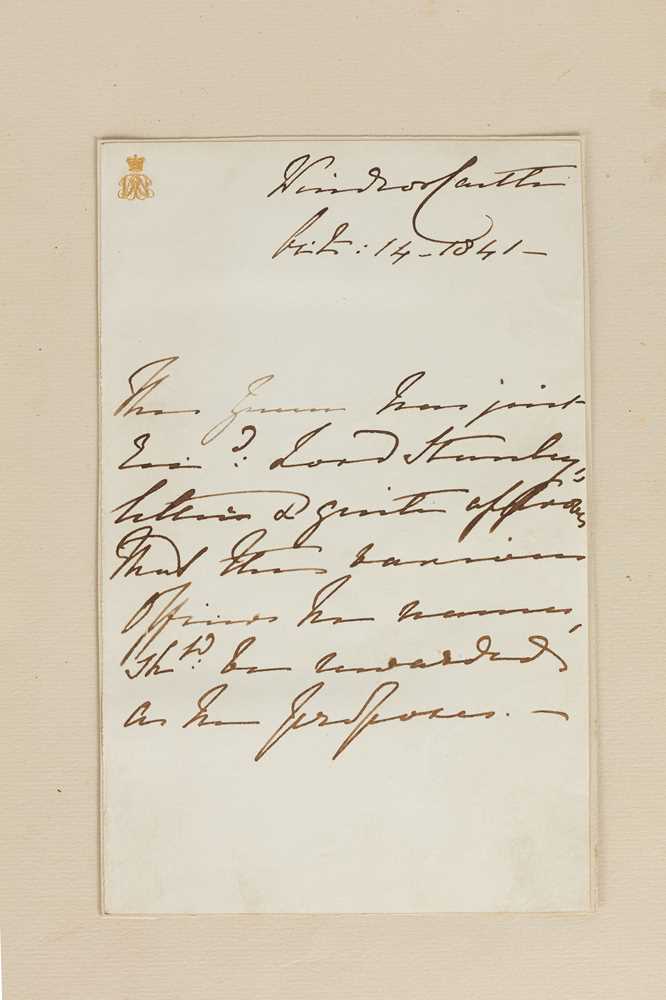 Windsor Castle
Oct: 14 - 1841 -
The Queen has just
recd: Lord Stanley's
letter & quite approves
that the various
Officers he names,
shd: be rewarded
as he proposes. -